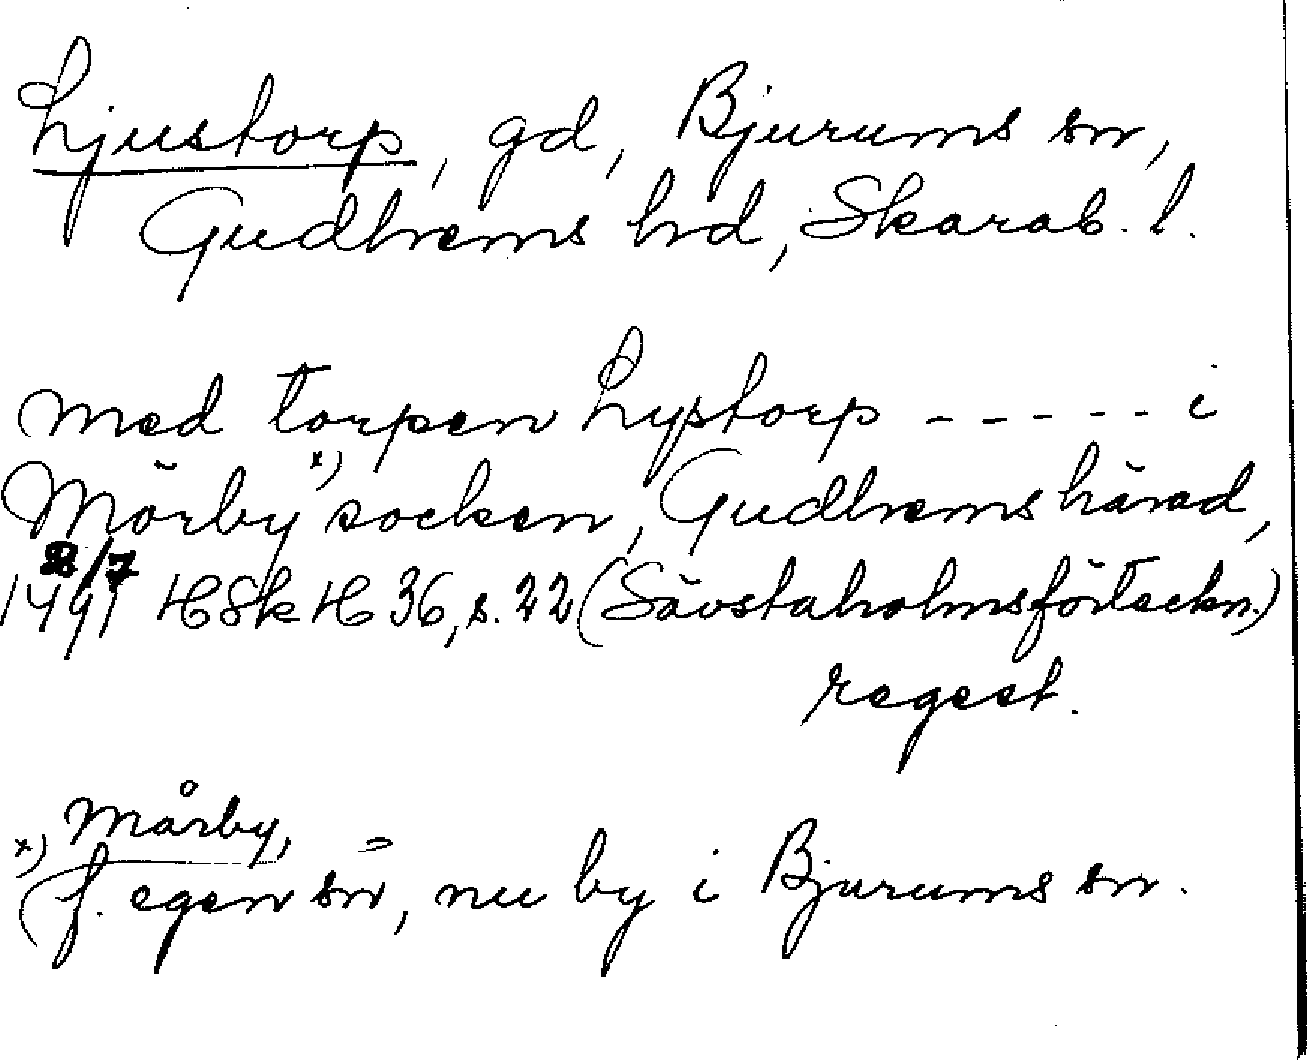 Ljustorp, gd, Bjurums sn,
Gudhems hd, Skarab. l.
med torpen Lystorp ----- i
Mörby x) socken, Gudhems härad,
2/7
1491 HSkH 36, s. 22 (Sävstaholmsförteckn.)
regest.
x) Mårby,
(f. egen sn, nu by i Bjurums sn.